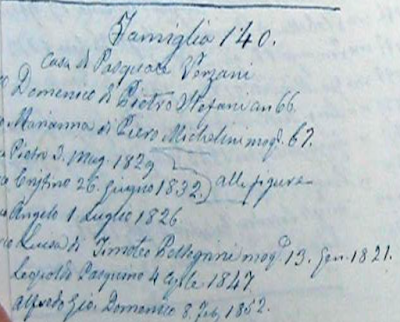 Famiglia 140.
Casa di Pasquale Verzani
Domenico di Pietro Stefani an 66
Marianna di Piero Michelini mogl. 67.
Pietro 3. Mag. 1829
Crisfino 26. Giugno 1832. } alle figura
Angelo 1 Luglio 1826
Luisa di Timoteo Pellegrini mogl. 13. Gen. 1821.
Leopoldo Pasquino 4 Aprle 1847
Alfredo Gio. Domenico 8. Feb. 1852.